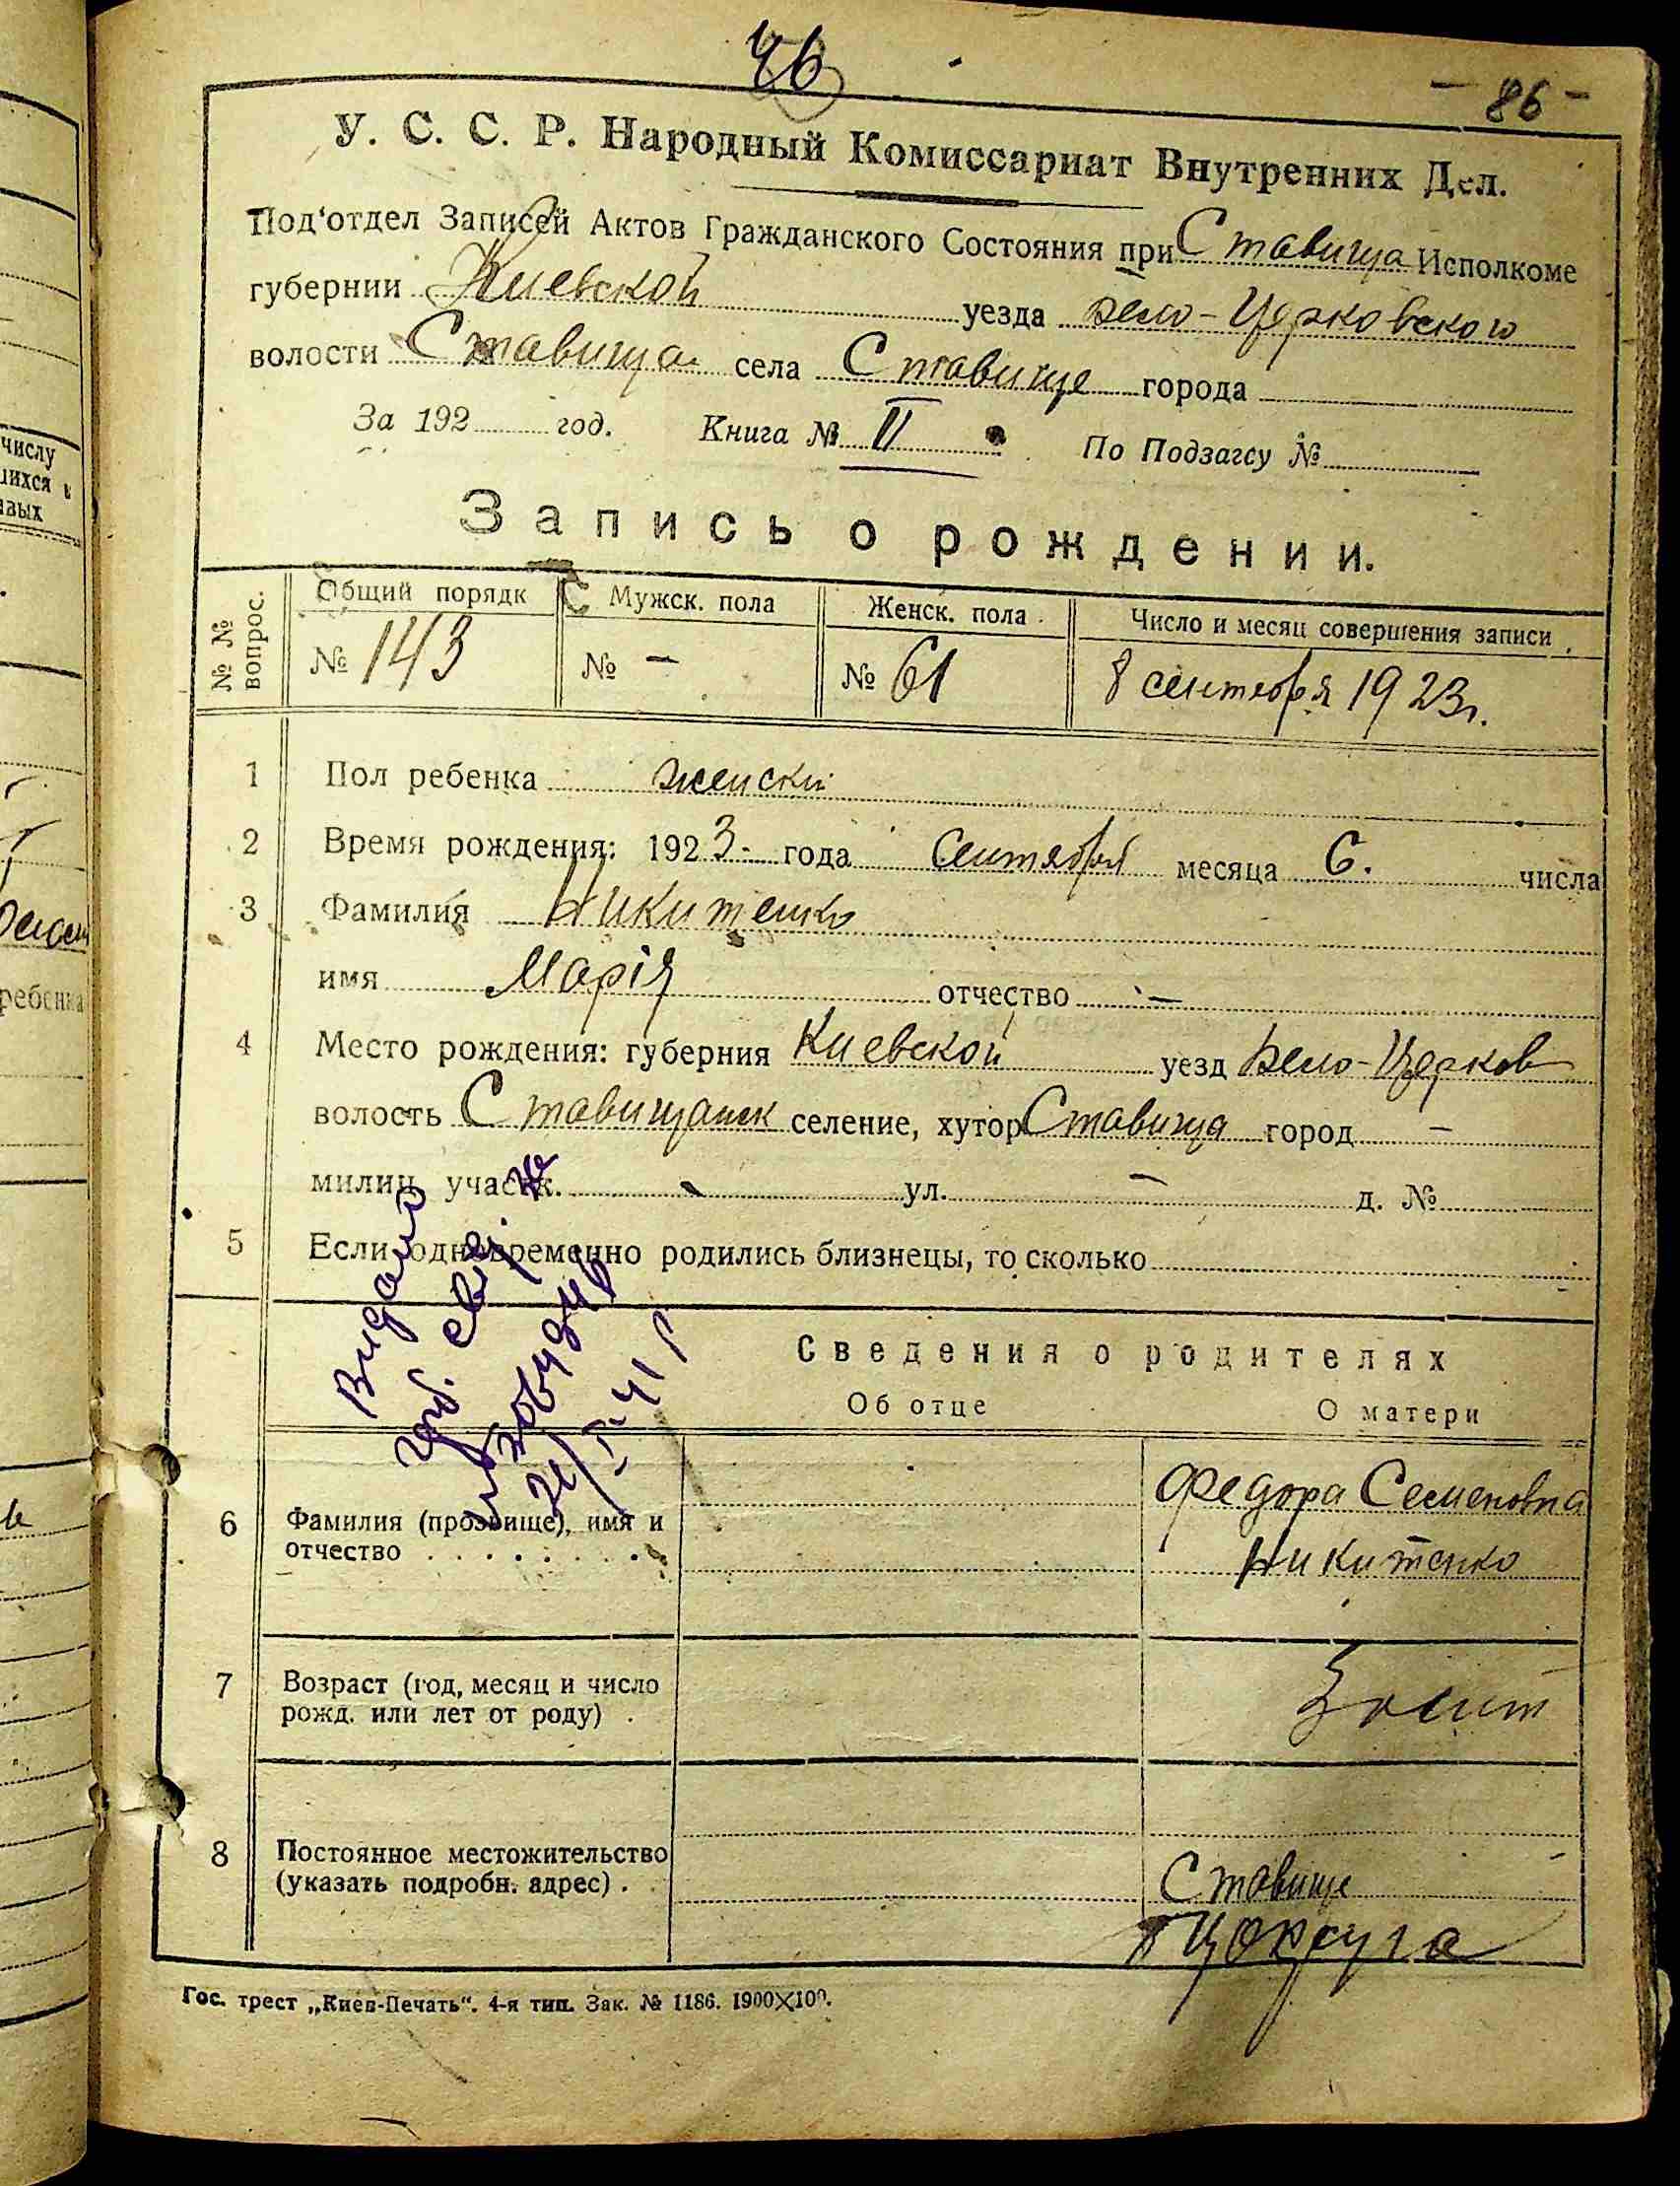 46
- 86 -
У. С. С. Р. Народный Комиссариат Внутренних Дел.
Под'отдел Записей Актов Гражданского Состояния при Ставища Исполкоме
губернии Киевской уезда Бело-Церковского
волости Ставища села Ставище города
За 192 год. Книга № II По Подзагсу №
Запись о рождении.
№ № вопрос.
Общий порядк Мужск. пола Женск. пола Число и месяц совершения записи
№ 143 № - № 61 8 сентября 1923 г.
1 Пол ребенка женски
2 Время рождения: 1923. года Сентября месяца 6. числа
3 Фамилия Никитенко
имя Марія отчество -
4 Место рождения: губерния Киевской уезд Бело-Церков
волость Ставищанск селение, хутор Ставища город -
милиц участк. - ул. - д. №
5 Если одновременно родились близнецы, то сколько
Видано
Сведения о родителях
Об отце О матери
6 Фамилия (прозвище), имя и
отчество
Федора Семеновна
Никитенко
7 Возраст (год, месяц и число
рожд. или лет от роду)
8 Постоянное местожительство
(указать подробн. адрес)
Ставище
Гос. трест „Киев-Печать“. 4-я тип. Зак. № 1186. 1900X100.
числу
ребенка